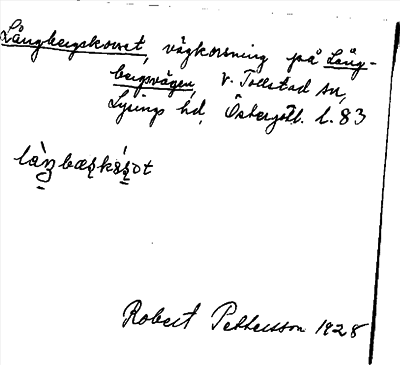 Långbergskorset, vägkorsning på Lång-
bergsvägen, V. Tollstad sn,
Lysings hd, Östergötl. l. 83
Robert Pettersson 1928